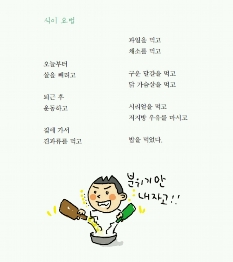 식이 요법
오늘부터
살을 빼려고
퇴근 후
운동하고
집에 가서
견과류를 먹고
과일을 먹고
채소를 먹고
구운 달걀을 먹고
닭 가슴살을 먹고
시리얼을 먹고
저지방 우유를 마시고
밥을 먹었다.
분위기만
내자고!!